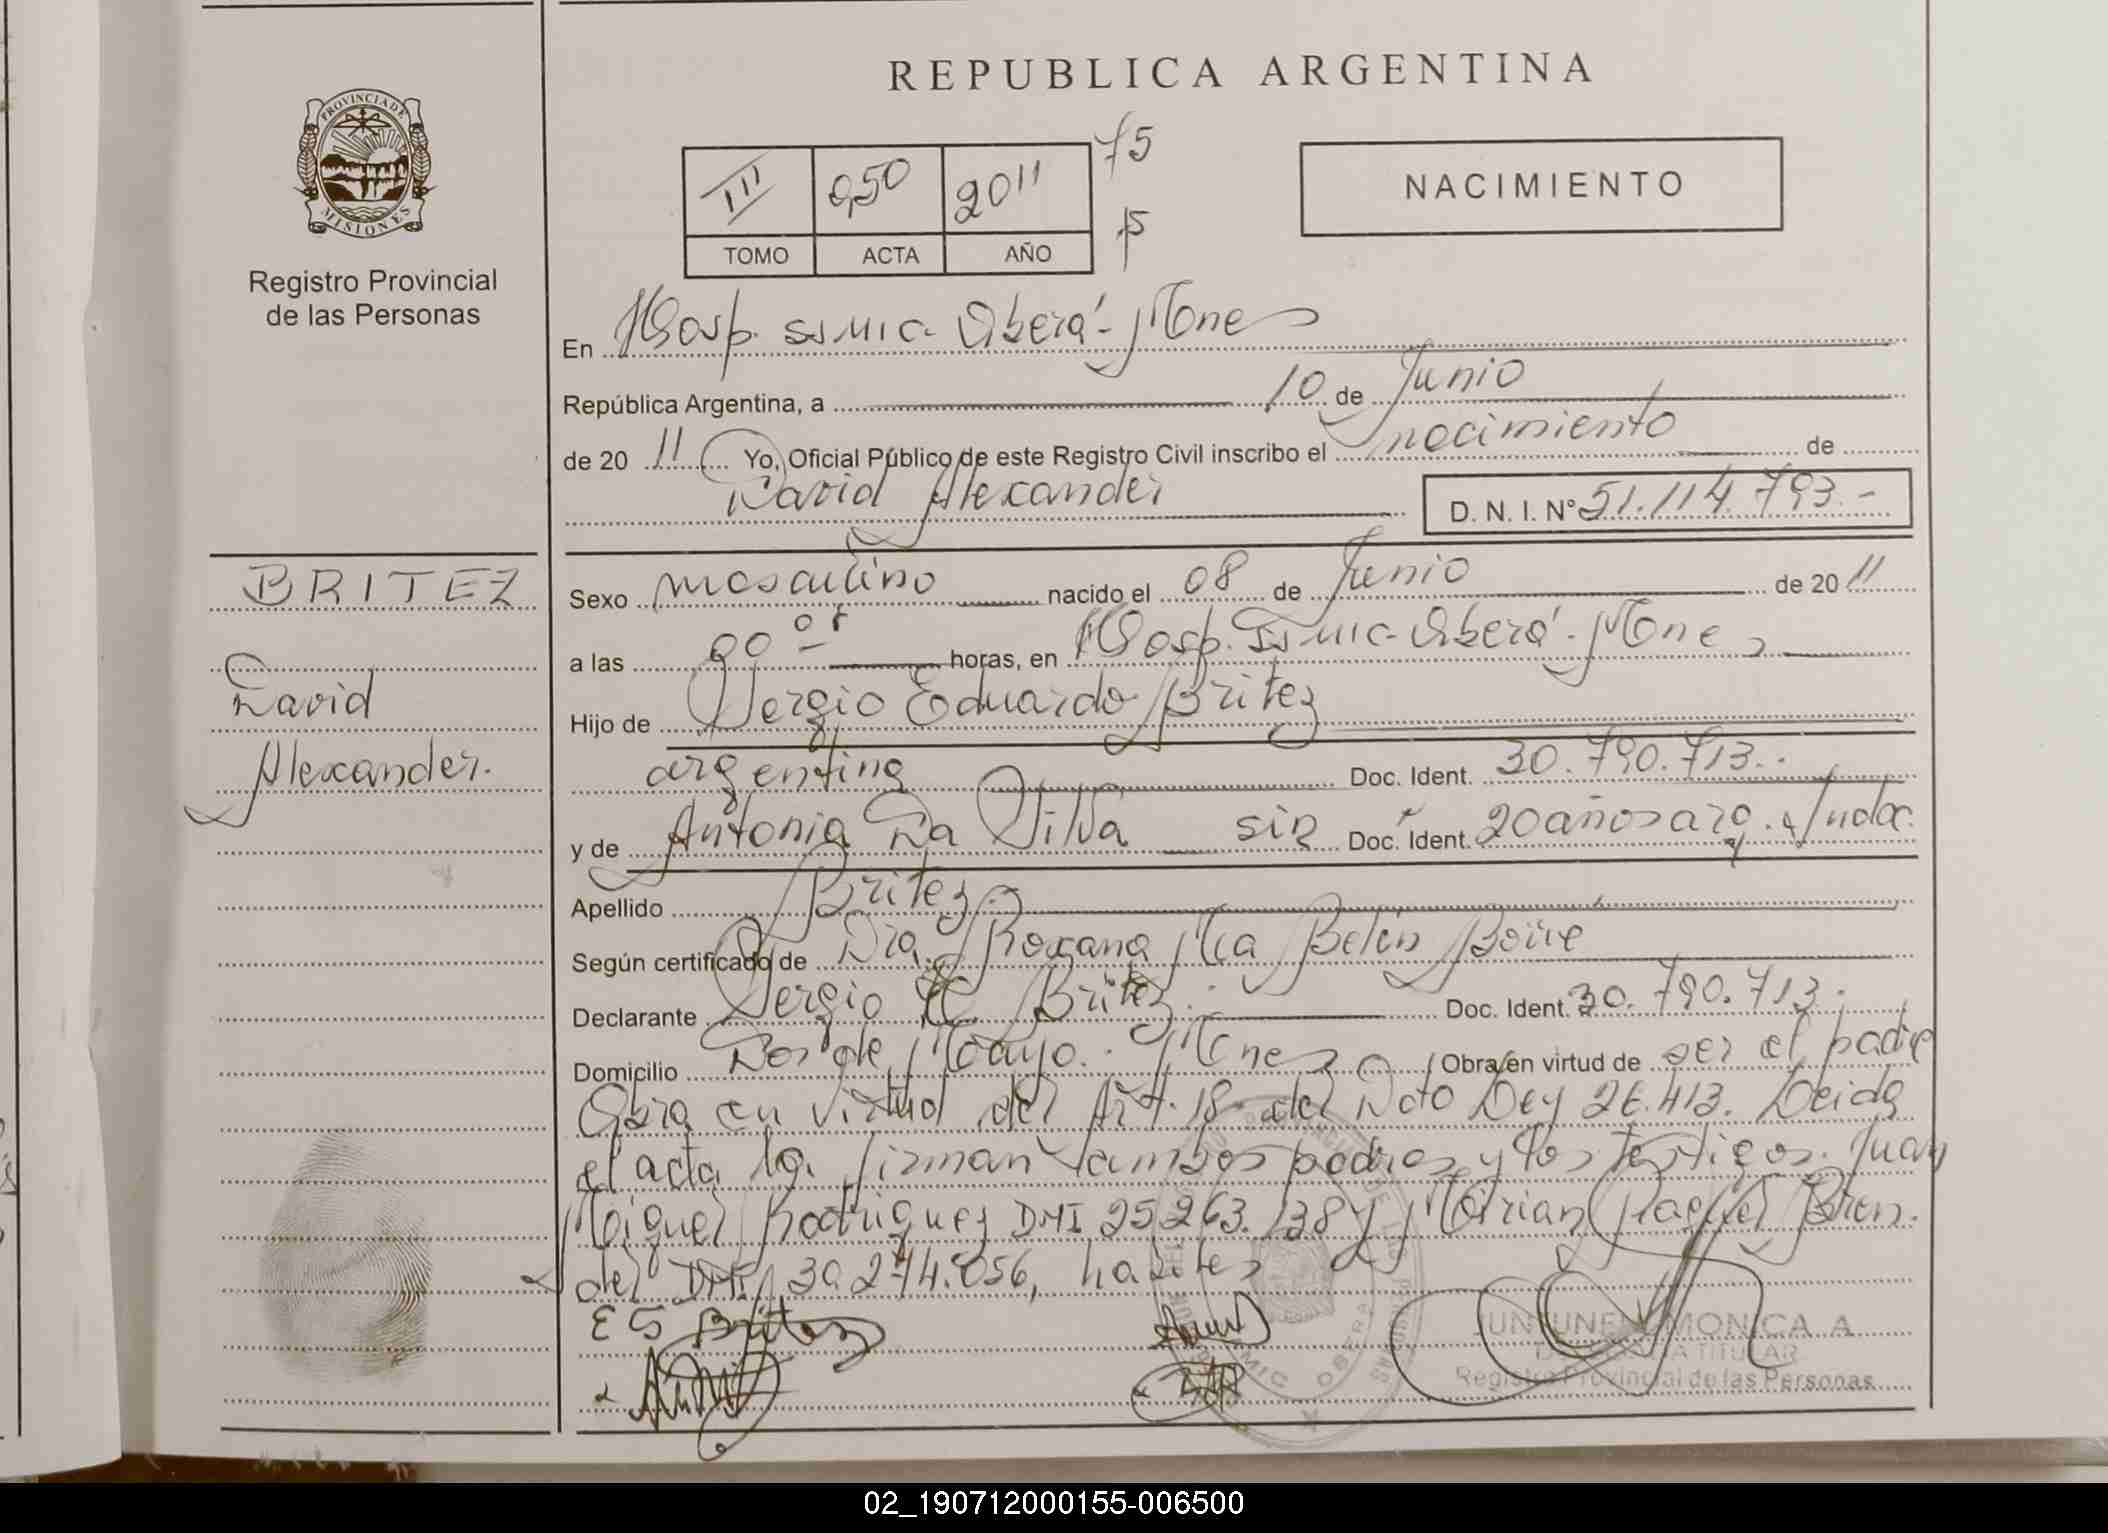 REPUBLICA ARGENTINA
PROVINCIA DE
MISIONES
Registro Provincial
de las Personas
III 050 2011 75
TOMO ACTA AÑO
NACIMIENTO
En Hosp. SSMIC- Oberá- Mnes
República Argentina, a 10 de Junio
de 20 11 Yo, Oficial Público de este Registro Civil inscribo el nacimiento de
David Alexander D. N. I. Nº 51.114.793.-
BRITEZ
David
Alexander.
Sexo masculino nacido el 08 de Junio de 20 11
a las horas, en Hosp. SSMIC- Oberá- Mnes
Hijo de Sergio Eduardo Britez
argentina Doc. Ident. 30.790.713.
y de Antonia Da Silva sin Doc. Ident. 20 años arg. Indoc.
Apellido Britez
Según certificado de Dra. Roxana Ma Belén
Declarante Sergio E. Britez Doc. Ident. 30.790.713.
Domicilio Dos de Mayo. Mnes Obra en virtud de ser el padre
Obra en virtud del Art. 18 del Dcto Ley 26.413. Leida
el acta la firman ambos padres y los testigos. Juan
Miguel Rodriguez DNI 25 263.138 y Mirian Raquel Bren.
del DNI 30.274.056, habiles
E S Britez
MONICA A
TITULAR
Registro Provincial de las Personas
02_190712000155-006500